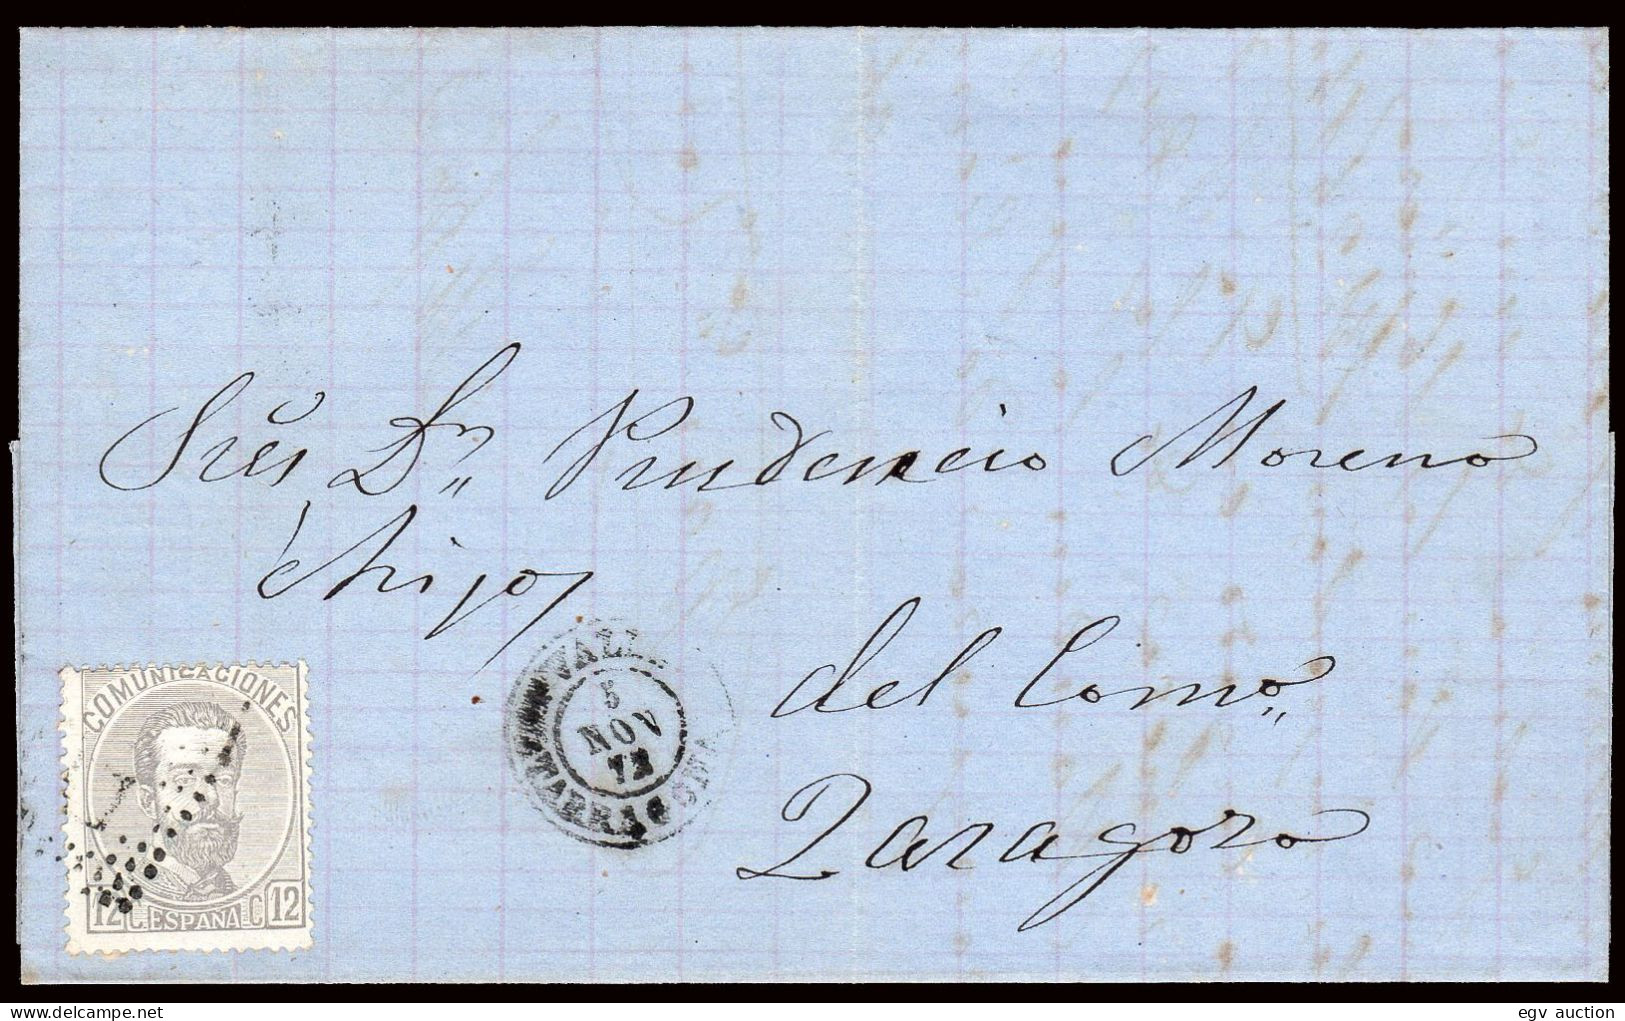 Sres Dn Prudencio Moreno
é hijos
del Como
Zaragoza
VALLS
5
NOV
72
TARRAGONA
COMUNICACIONES
12 C. ESPAÑA C 12
delcampe.net
egv auction